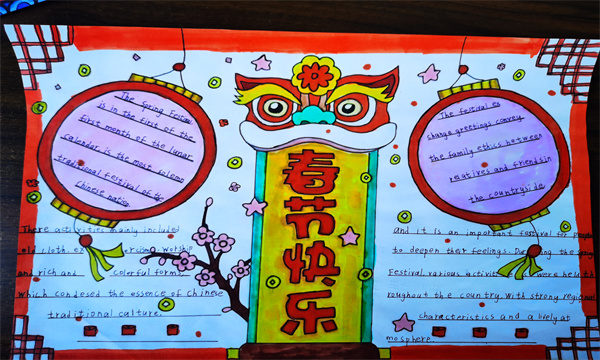 The Spring Festival
is in the first of the
first month of the lunar
calendar, is the most solemn
traditional festival of the
Chinese nation
There activities mainly included
old cloth, worship
and rich and colorful forms
which condesed the essence of Chinese
traditional calture.
春节快乐
The festival es
change greetings convey
the family ethics between
relatives and friendsin
the countryside
And it is an important festival for people
to deepen their feelings. During the
Festival, various activit were held th
roughout the country. With strong regional
characteristics and a lively at
mosphere.